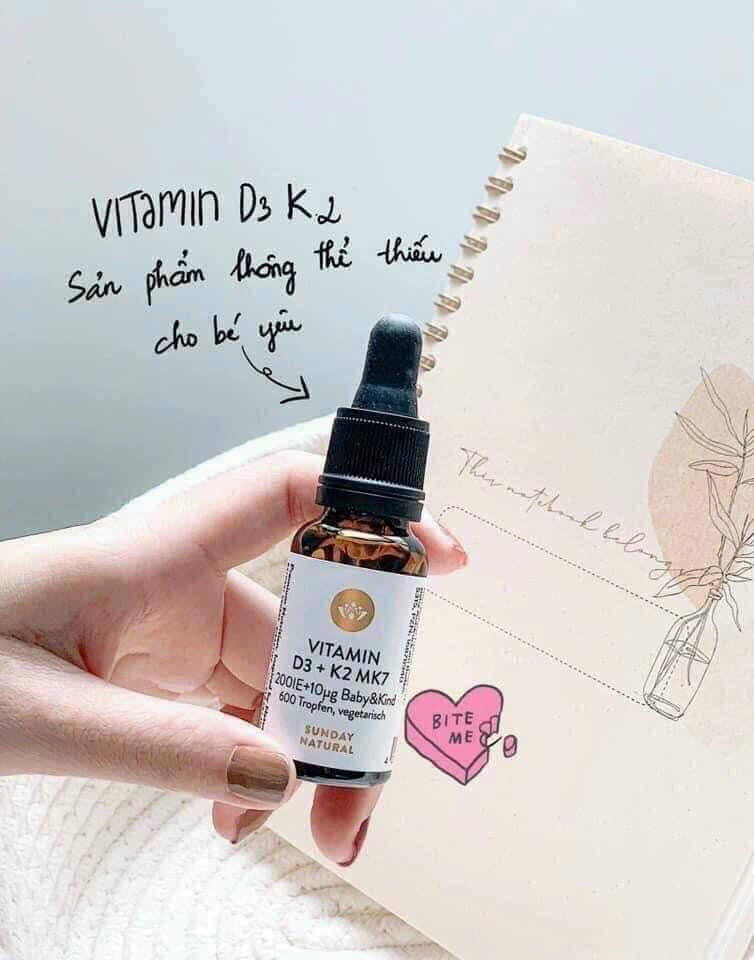 VITAMIN D3 K2
Sản phẩm không thể thiếu
cho bé yêu
This notebook belong
VITAMIN
D3 + K2 MK7
200IE+10µg Baby&Kind
600 Tropfen, vegetarisch
SUNDAY
NATURAL
BITE
ME